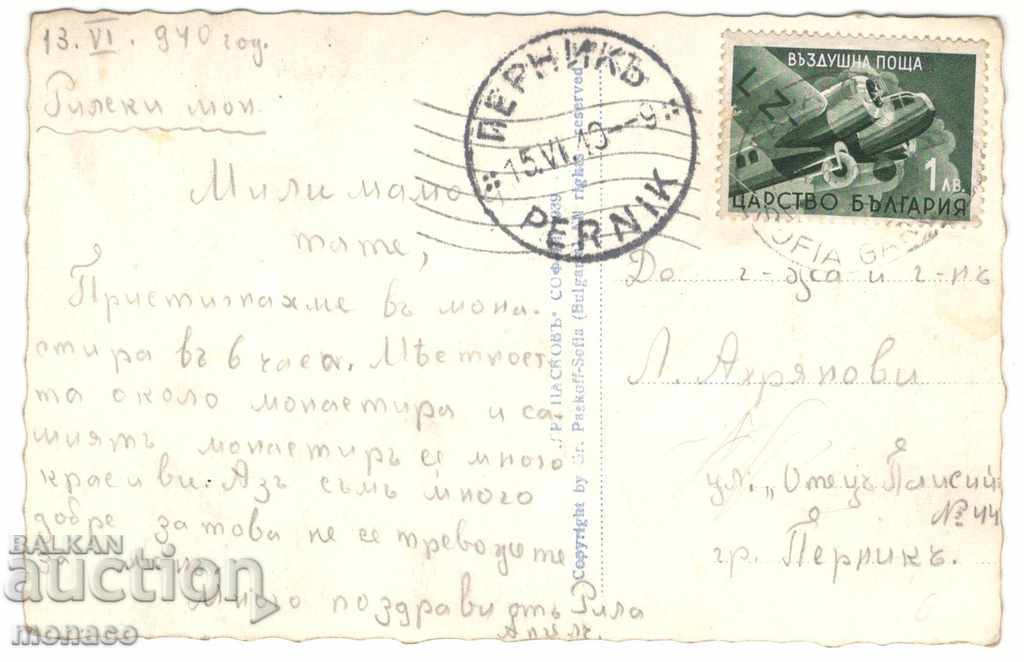 13. VI. 940 год.
Рилски мон.
Мили мамо и
тате,
Пристигнахме въ мона-
стира въ 6 часа. Мѣстност-
та около монастира и са-
миятъ монастиръ сѫ много
красиви. Азъ съмъ много
добре затова не се тревожете
за мене.
Много поздрави отъ Рила
ПЕРНИКЪ
15.VI.40--9
PERNIK
ВЪЗДУШНА ПОЩА
1 ЛВ.
ЦАРСТВО БЪЛГАРИЯ
SOFIA GARE
ГР. ПАСКОВЪ - СОФИЯ 1939
Copyright by Gr. Paskoff-Sofia (Bulgaria) All rights reserved
До г-жа и г-нъ
Л. Ахрянови
ул. „Отецъ Паисий"
№ 44
гр. Перникъ.
6
BALKAN
auction
monaco